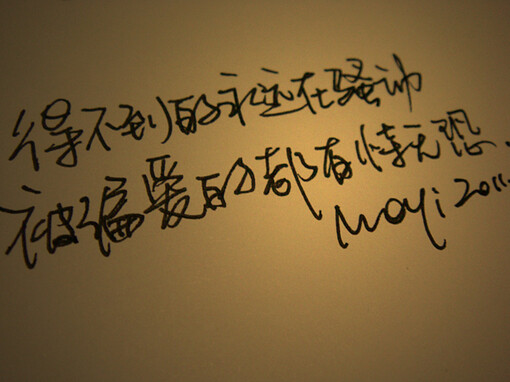 得不到的永远在骚动
被偏爱的都有恃无恐.
Moyi 2011.